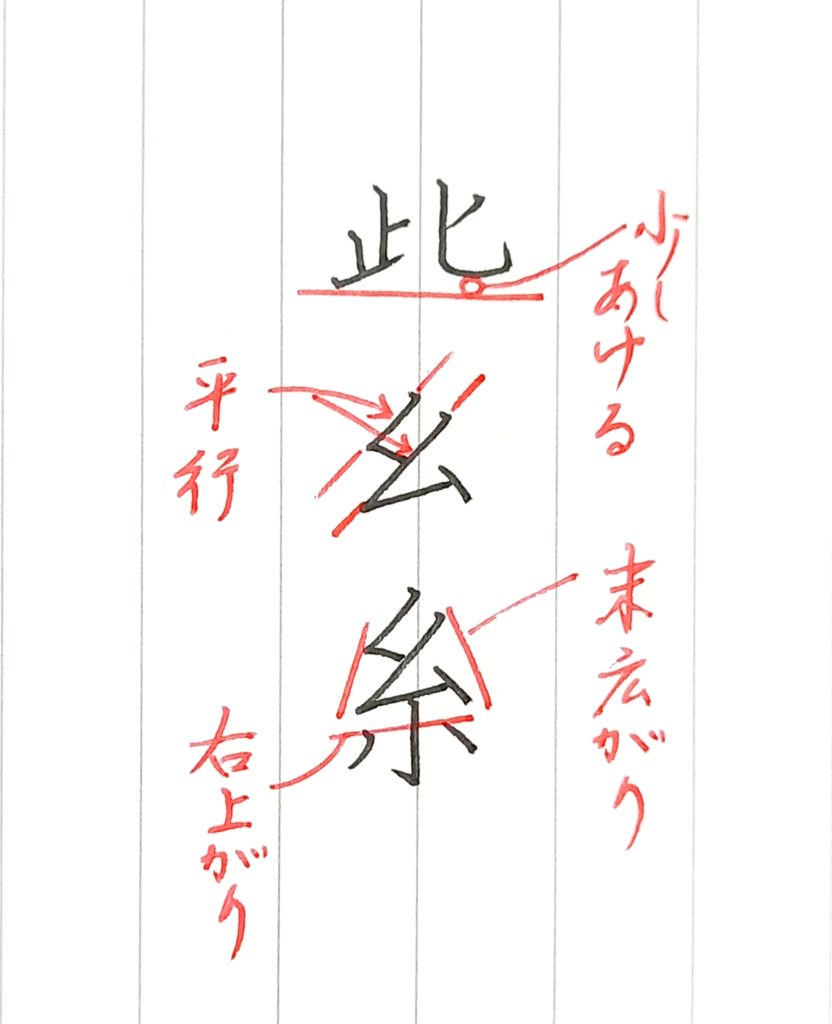 此
幺
糸
少し
あける
末広がり
平行
右上がり